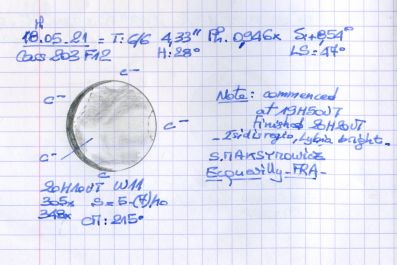 18.05.21 = T: 6/6 4,33" Ph. 0,946x
Cass 203 F12 H: 28° LS: 47°
C-
C-
C-
C-
C-
Note: commenced
at 19H50UT
Finished 20H20UT
- Isidis regio, Lybia bright.
S. MAKSYMOWICZ
Ecquevilly - FRA -
20H10UT W11
305x S = 5-(7)/10
348x CM: 215°